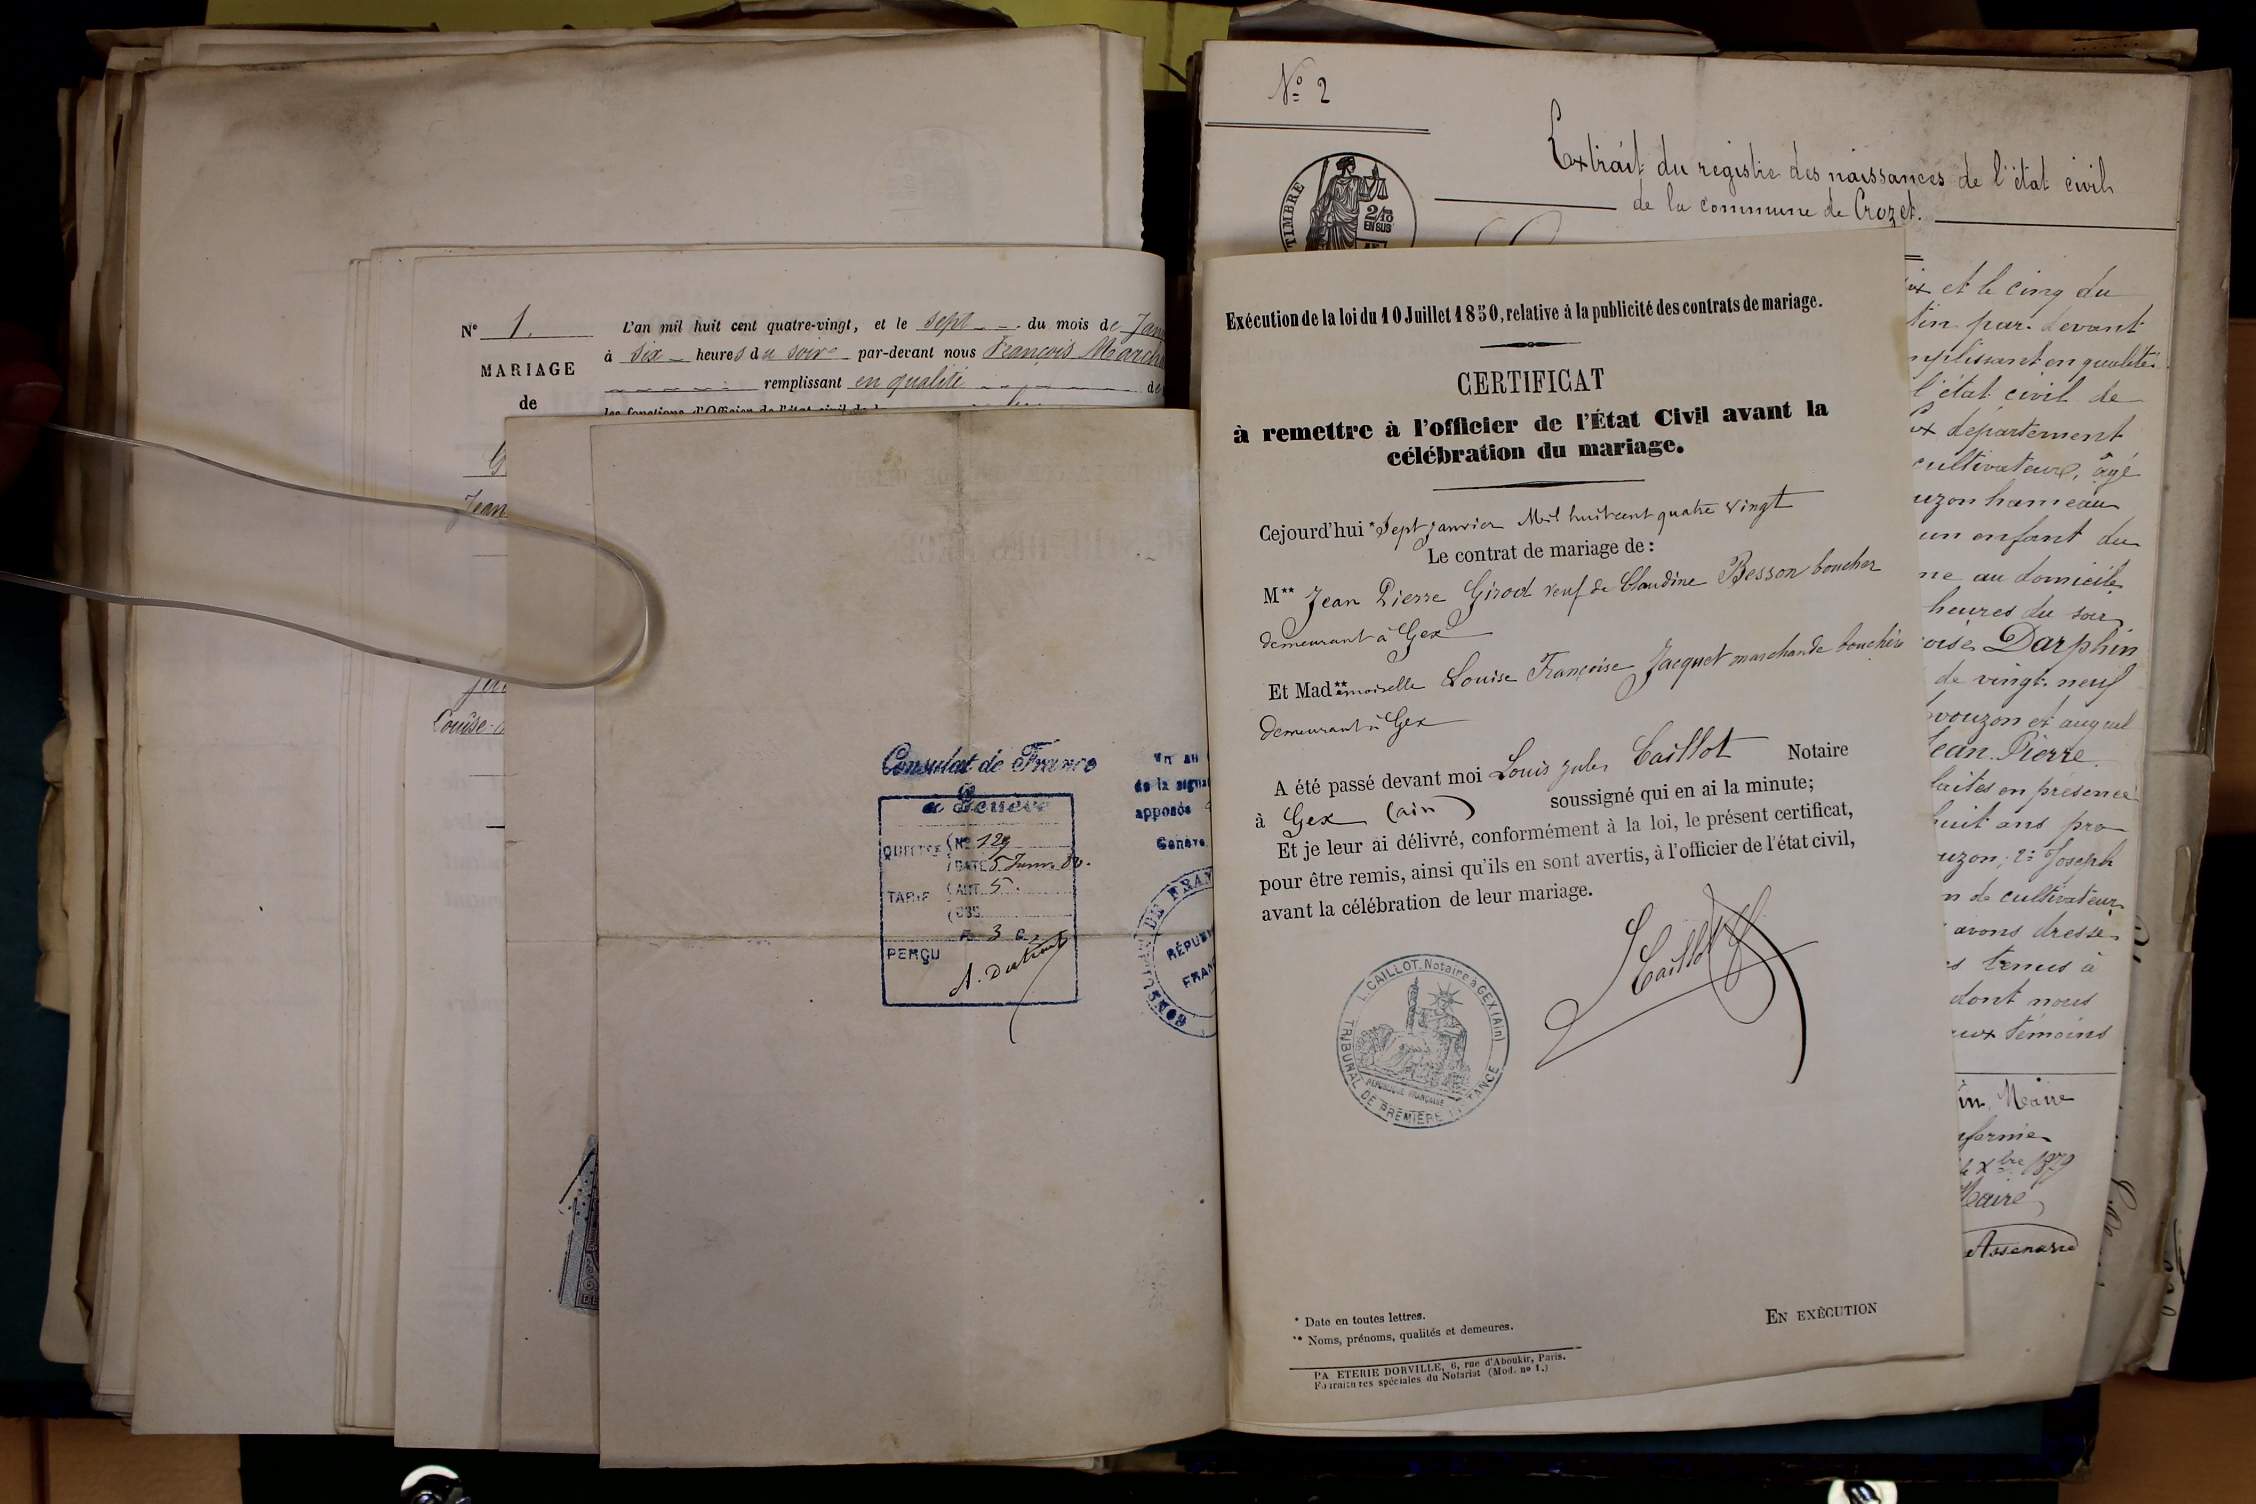 N° 1.
MARIAGE
de
L'an mil huit cent quatre-vingt, et le sept du mois de Jan
à six heures du soir par-devant nous François March
remplissant en qualité de
les fonctions d'Officier de l'état civil de
Jean
Louise
Consulat de France
à Genève
QUITTCE N° 129
DATE 5 Janv. 80.
TARIF ART. 5.
OBS.
F. 3 C.
PERÇU
Vu au
de la signat
apposée
Genève
CONSULAT DE FRAN
RÉPUBLI
FRAN
N° 2
Extrait du registre des naissances de l'état civil
de la commune de Crozet.
TIMBRE
2/10
EN SUS
Exécution de la loi du 10 Juillet 1850, relative à la publicité des contrats de mariage.
CERTIFICAT
à remettre à l'officier de l'État Civil avant la
célébration du mariage.
Cejourd'hui * Sept janvier Mil huit cent quatre vingt
Le contrat de mariage de :
M** Jean Pierre Girod veuf de Claudine Besson boucher
demeurant à Gex
Et Mad**emoiselle Louise Françoise Jacquet marchande bouchère
demeurant à Gex
A été passé devant moi Louis Jules Caillot Notaire
à Gex (ain) soussigné qui en ai la minute;
Et je leur ai délivré, conformément à la loi, le présent certificat,
pour être remis, ainsi qu'ils en sont avertis, à l'officier de l'état civil,
avant la célébration de leur mariage.
LCaillot
L. CAILLOT, Notaire à GEX (Ain)
TRIBUNAL DE PREMIERE INSTANCE
RÉPUBLIQUE FRANÇAISE
* Date en toutes lettres.
** Noms, prénoms, qualités et demeures.
EN EXÉCUTION
PA ETERIE DORVILLE, 6, rue d'Aboukir, Paris.
Fournitures spéciales du Notariat (Mod. n° 1.)
ix et le cinq du
tin par-devant
mplissant en qualité
l'état civil de
ex département
cultivateur, âgé
uzon hameau
un enfant du
ne au domicile
heures du soir
oise Darphin
de vingt-neuf
vouzon et auquel
Jean-Pierre
faites en présence
huit ans pro
uzon; 2° Joseph
n de cultivateur
avons dressé
s tenus à
dont nous
aux témoins
in, Maire
nforme
le Xbre 1879
Maire